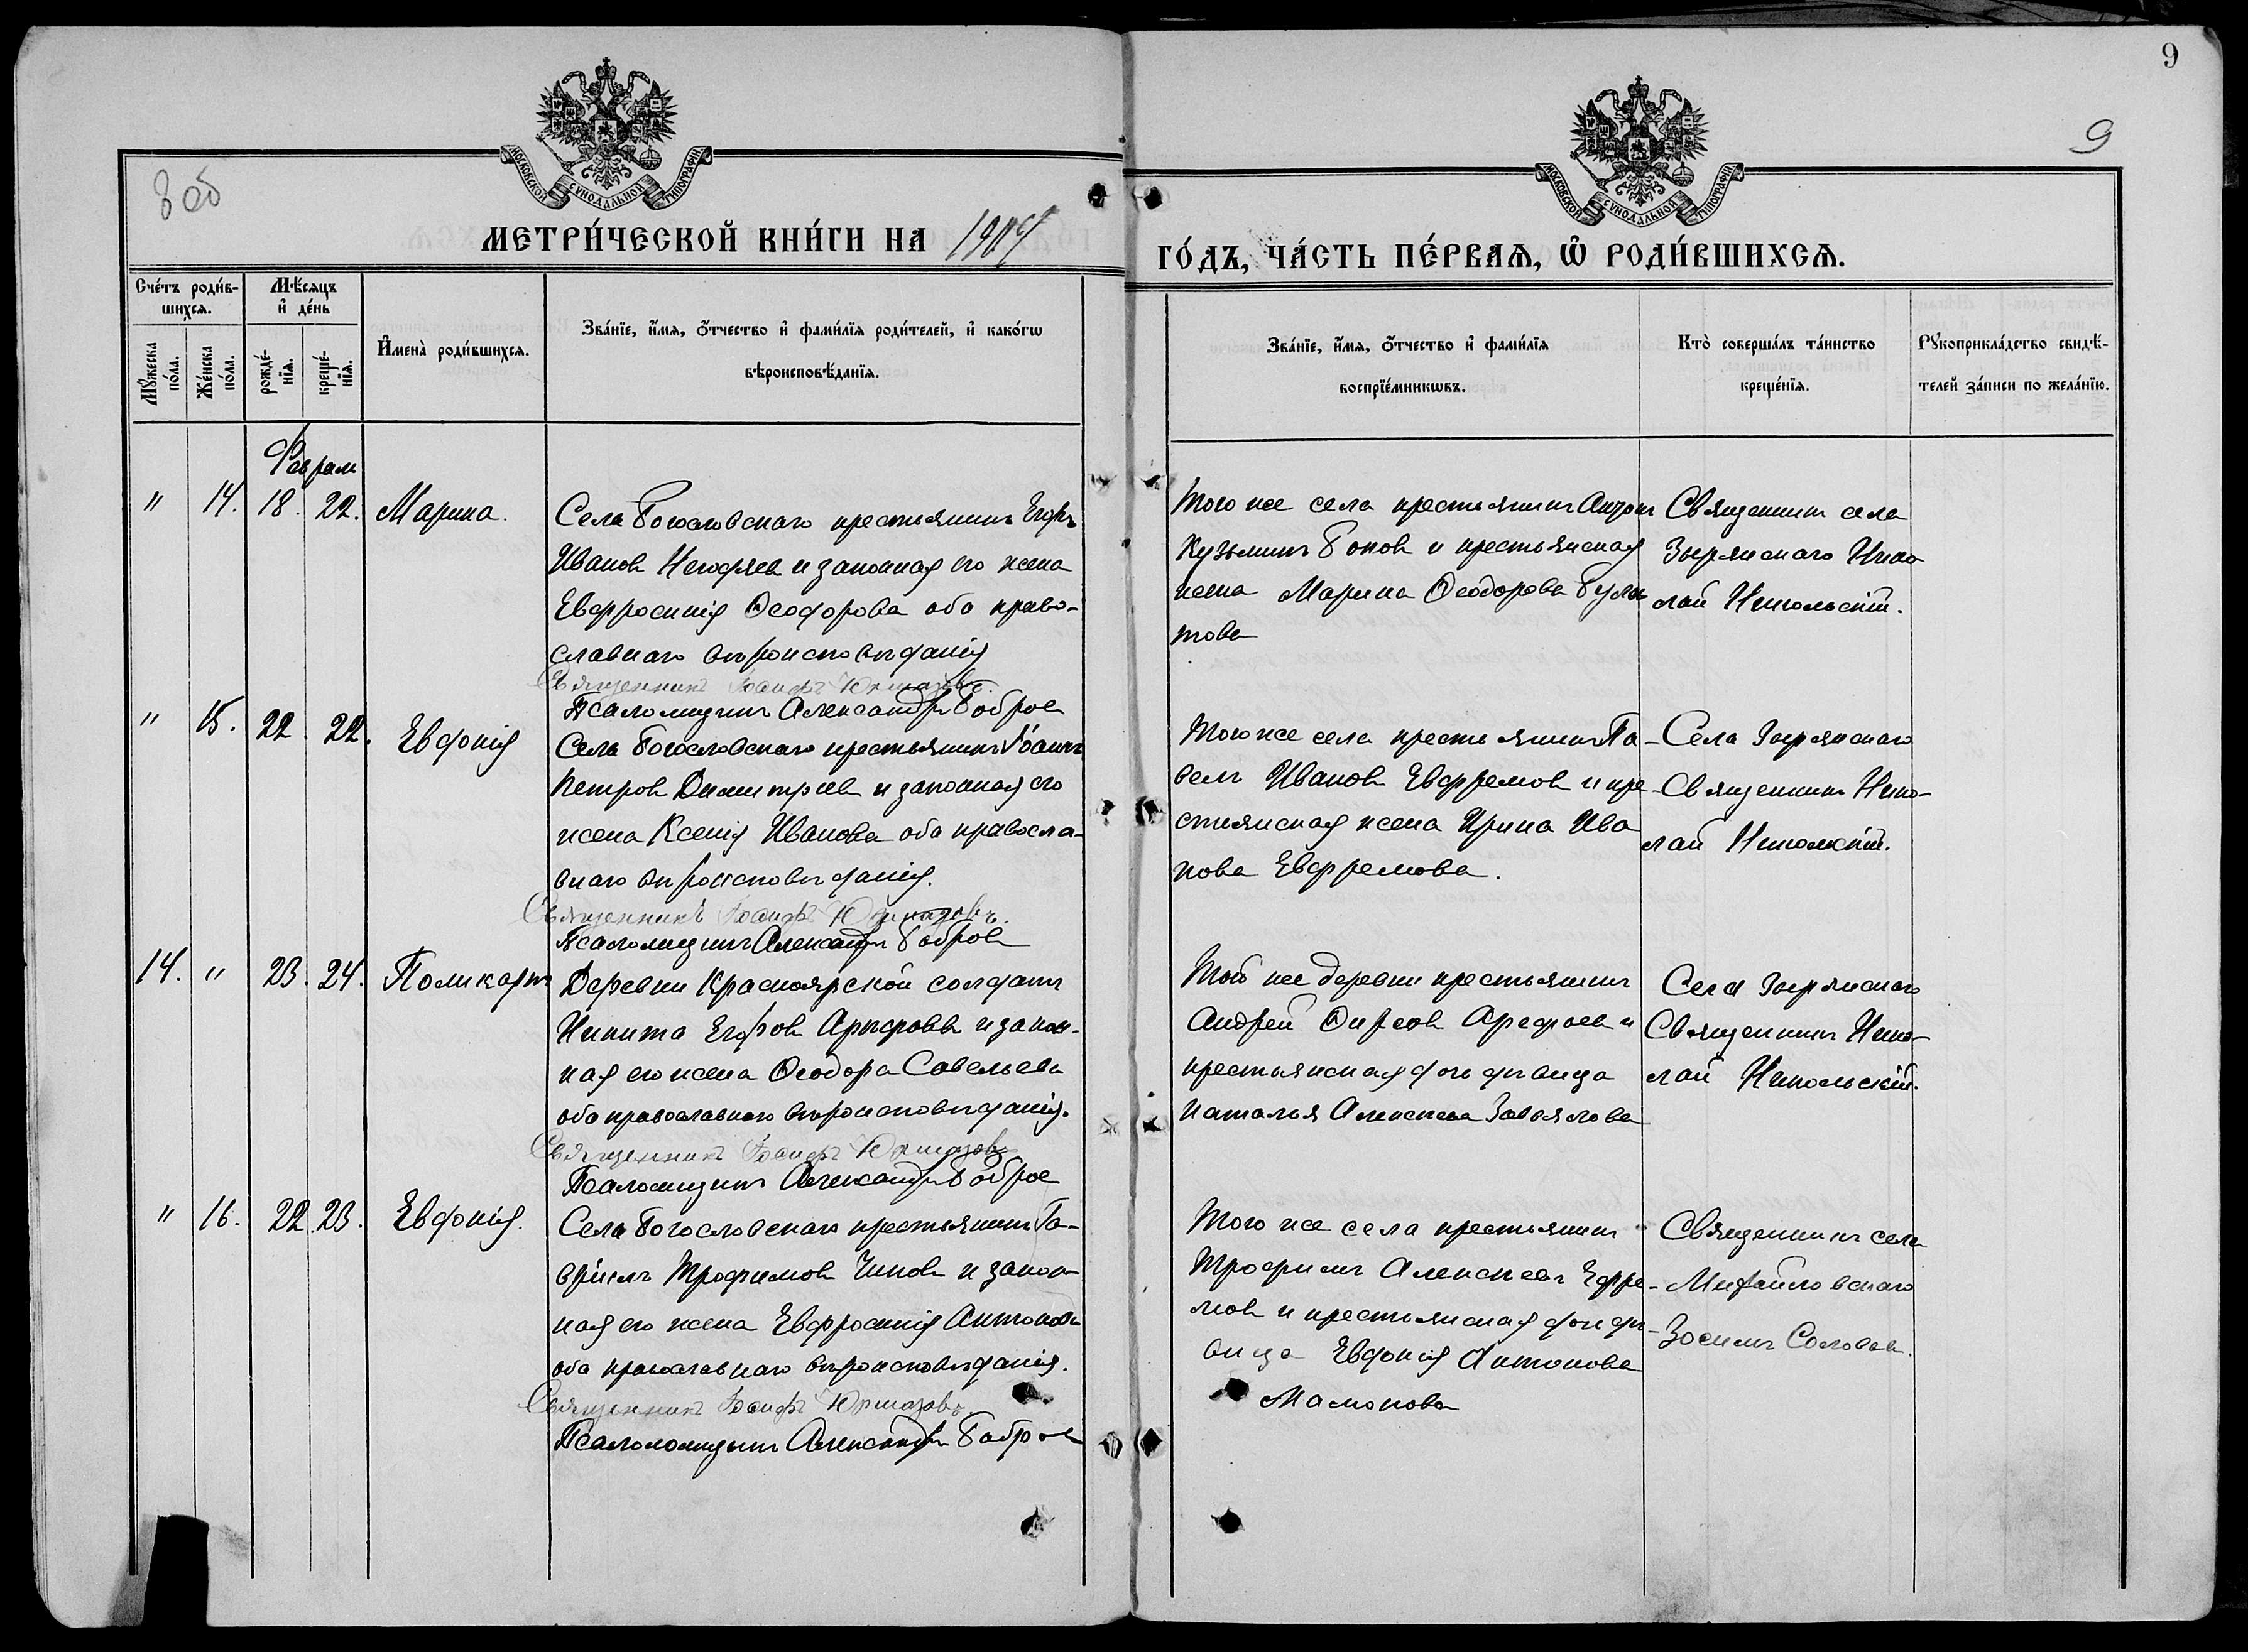 9
9
8 об
МОСКОВСКОЙ СѴНОДАЛЬНОЙ ТИПОГРАФІИ
МОСКОВСКОЙ СѴНОДАЛЬНОЙ ТИПОГРАФІИ
МЕТРИ́ЧЕСКОЙ КНИ́ГИ НА 1904
ГО́ДЪ, ЧА́СТЬ ПЕ́РВАѦ, Ѽ РОДИ́ВШИХСѦ.
Сче́тъ роди́в-
шихсѧ.
Мꙋ́жеска
по́ла.
Же́нска
по́ла.
Мѣ́сѧцъ
и҆ де́нь
рожде́-
нїѧ.
креще́-
нїѧ.
И҆мена̀ роди́вшихсѧ.
Зва́нїе, и҆́мѧ, ѻ҆́тчество и҆ фами́лїѧ роди́телей, и҆ како́гѡ
вѣроисповѣ́данїѧ.
Зва́нїе, и҆́мѧ, ѻ҆́тчество и҆ фами́лїѧ
воспрїе́мникѡвъ.
Кто̀ соверша́лъ та́инство
креще́нїѧ.
Рꙋкоприкла́дство свидѣ́-
телей за́писи по жела́нїю.
Февраль
" 14. 18. 22. Марина.
Села Богословскаго крестьянинъ Егоръ
Ивановъ Негодяевъ и законная его жена
Евфросинія Ѳеодорова оба право-
славнаго вѣроисповѣданія
Священникъ Іосифъ Юрмазовъ.
Псаломщикъ Александръ Бобровъ
Того же села крестьянинъ Антонъ
Кузьминъ Боковъ и крестьянская
жена Марина Ѳеодорова Була
това
Священникъ села
Зырянскаго Нико
лай Никольскій.
" 15. 22. 22. Евдокія
Села Богословскаго крестьянинъ Іоаннъ
Петровъ Димитріевъ и законная его
жена Ксенія Иванова оба правосла-
внаго вѣроисповѣданія.
Священникъ Іосифъ Юрмазовъ.
Псаломщикъ Александръ Бобровъ
Того же села крестьянинъ Па-
велъ Ивановъ Евфремовъ и кре-
стьянская жена Ирина Ива
нова Евфремова.
Села Зырянскаго
Священникъ Нико-
лай Никольскій.
14. " 23. 24. Поликарпъ
Деревни Красноярской солдатъ
Никита Егоровъ Арефьевъ и закон-
ная его жена Ѳеодора Савельева
оба православнаго вѣроисповѣданія.
Священникъ Іосифъ Юрмазовъ
Псаломщикъ Александръ Бобровъ
Той же деревни крестьянинъ
Андрей Арефьевъ и
крестьянская дочь дѣвица
Наталья Алексѣева Завьялова
Села Зырянскаго
Священникъ Нико-
лай Никольскій.
" 16. 22. 23. Евдокія.
Села Богословскаго крестьянинъ Га-
вріилъ Трофимовъ Чиновъ и закон-
ная его жена Евфросинія Антонова
оба православнаго вѣроисповѣданія.
Священникъ Іосифъ Юрмазовъ.
Псаломщикъ Александръ Бобровъ
Того же села крестьянинъ
Трофимъ Алексѣевъ Ефре-
мовъ и крестьянская дочь дѣ-
вица Евдокія Антонова
Мамонова
Священникъ села
Михайловскаго
Зосимъ Соловьевъ.